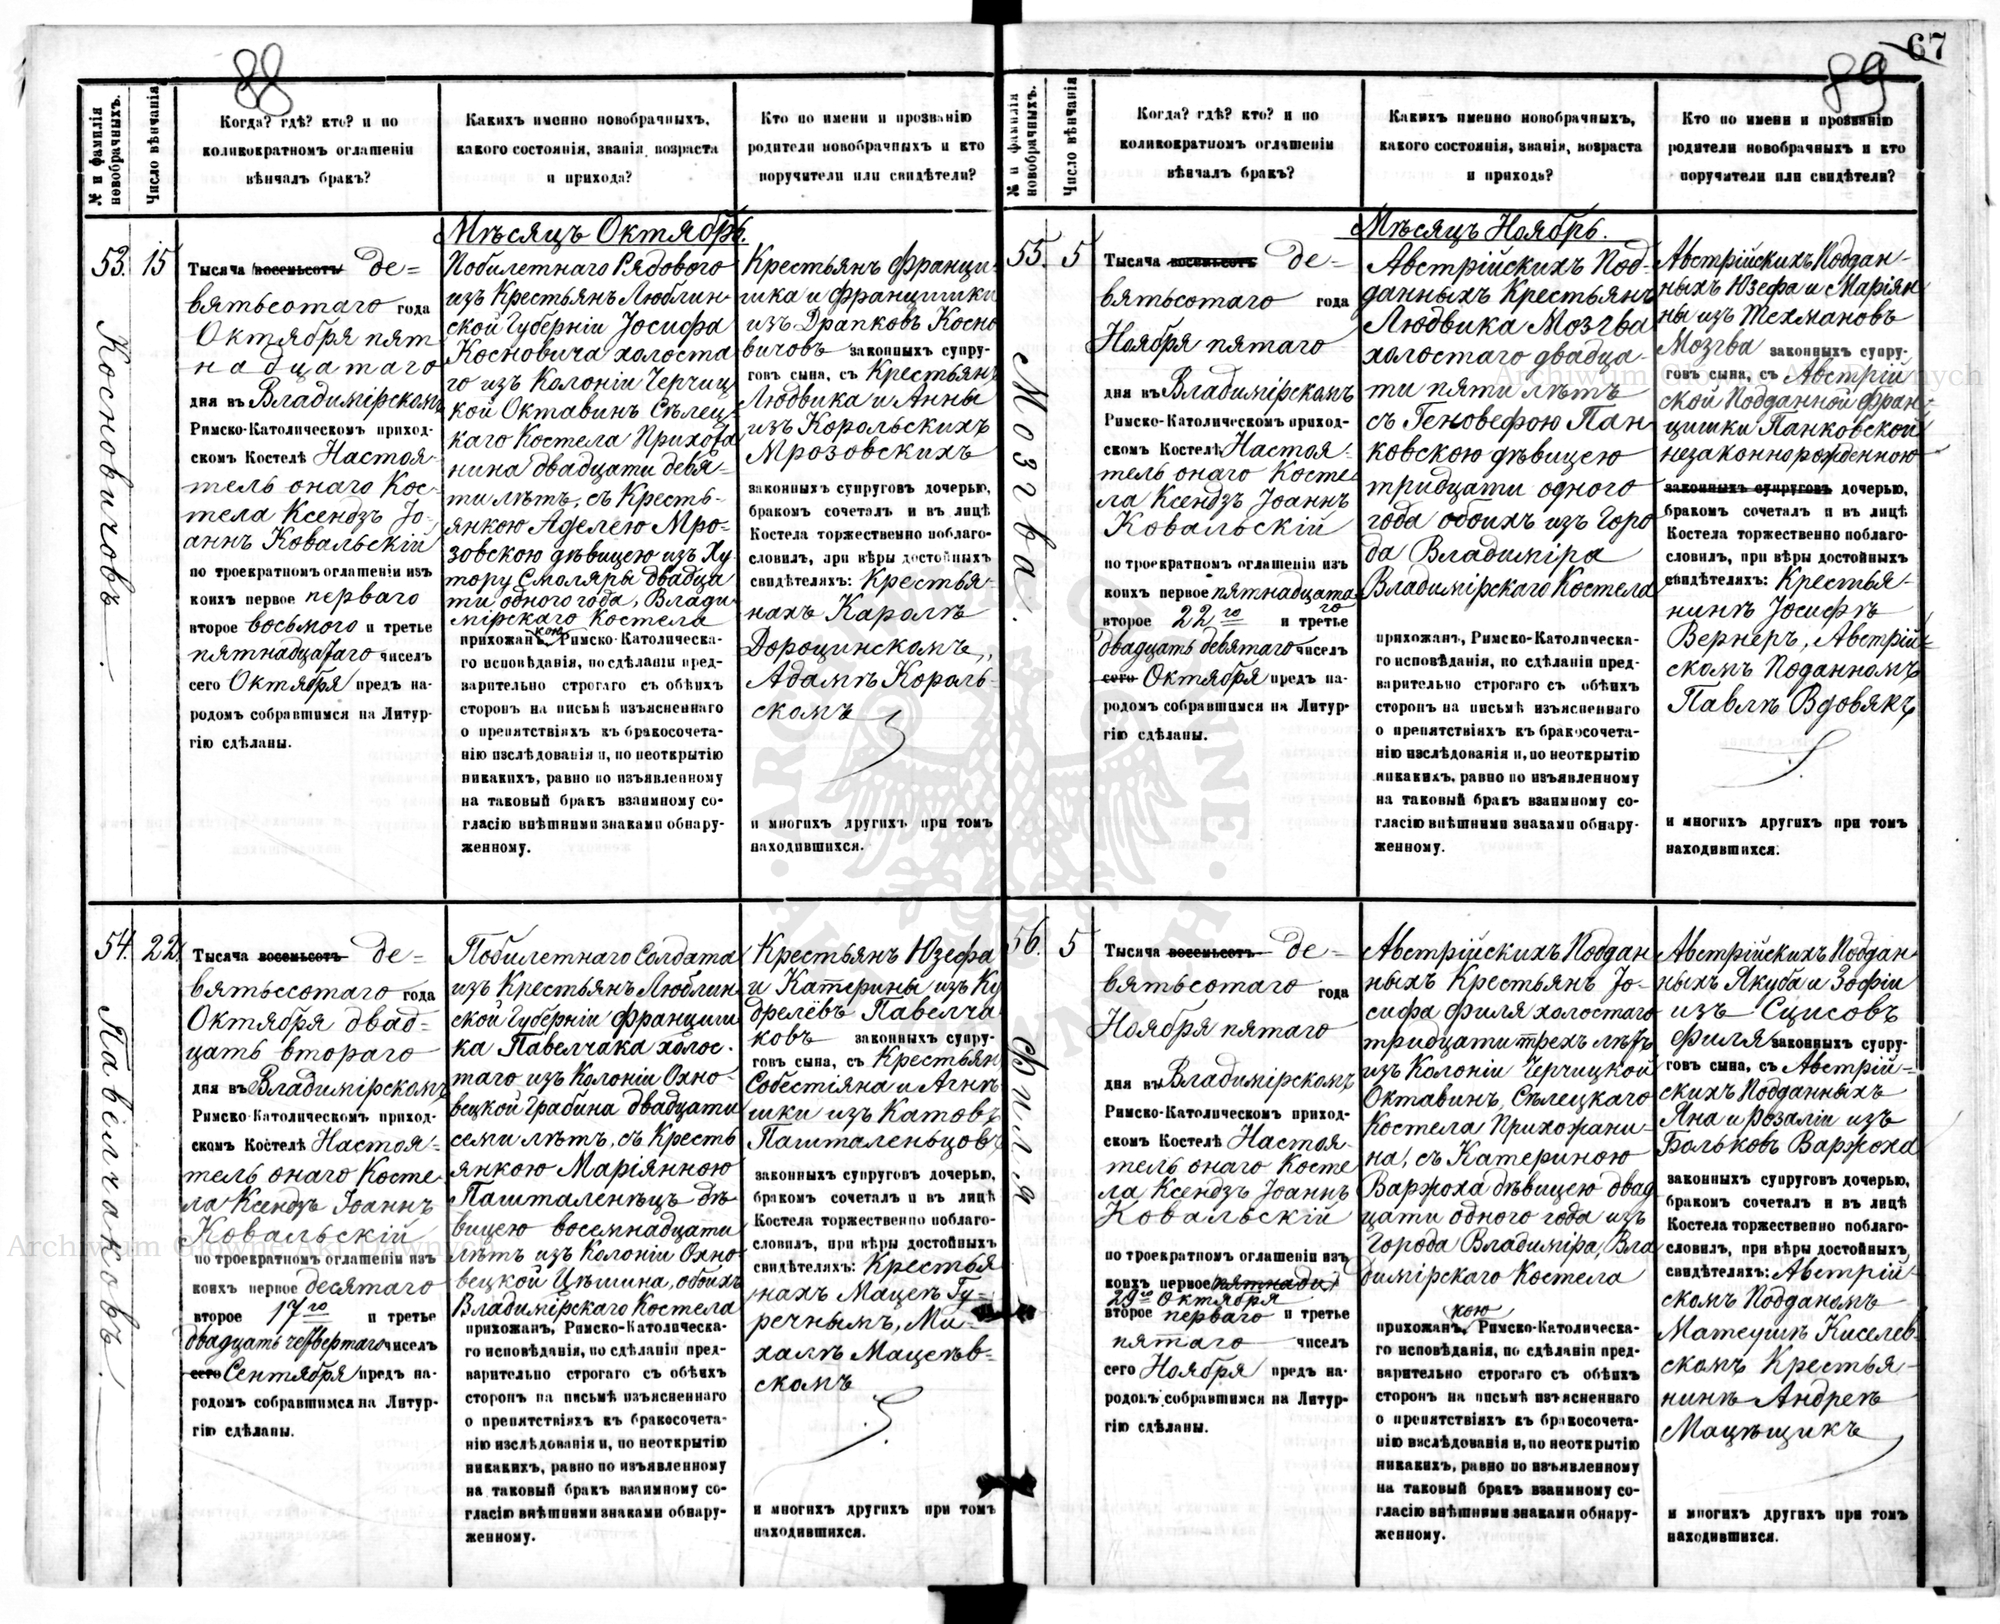 88
№ и фамилія новобрачныхъ.
Число вѣнчанія
Когда? гдѣ? кто? и по
коликократномъ оглашеніи
вѣнчалъ бракъ?
Какихъ именно новобрачныхъ,
какого состоянія, званія, возраста
и прихода?
Кто по имени и прозванію
родители новобрачныхъ и кто
поручители или свидѣтели?
Мѣсяцъ Октябрь.
53.
Косновичовъ
15
Тысяча восемьсотъ де=
вятьсотаго года
Октября пят
надцатаго
дня въ Владимірскомъ
Римско-Католическомъ приход-
скомъ Костелѣ Настоя-
тель онаго Кос-
тела Ксендзъ Іо-
аннъ Ковальскій
по троекратномъ оглашеніи изъ
коихъ первое перваго
второе восьмого и третье
пятнадцатаго чиселъ
сего Октября предъ на-
родомъ собравшимся на Литур-
гію сдѣланы.
Побилетнаго Рядового
изъ Крестьянъ Люблин-
ской Губерніи Іосифа
Косновича холоста
го изъ Колоніи Черчиц
кой Октавинъ Сѣлец-
каго Костела Прихожа
нина двадцати девя-
ти лѣтъ, съ Кресть-
янкою Аделею Мро-
зовскою дѣвицею изъ Ху
тору Смоляры двадца
ти одного года, Влади
мірскаго Костела
кою
прихожанъ, Римско-Католическа-
го исповѣданія, по сдѣланіи пред-
варительно строгаго съ обѣихъ
сторонъ на письмѣ изъясненнаго
о препятствіяхъ къ бракосочета-
нію изслѣдованія и, по неоткрытію
никакихъ, равно по изъявленному
на таковый бракъ взаимному со-
гласію внѣшними знаками обнару-
женному.
Крестьян Францы-
шка и Францишки
изъ Драпковъ Косно
вичовъ законныхъ супру-
говъ сына, съ Крестьянъ
Людвика и Анны
изъ Корольскихъ
Мрозовскихъ
законныхъ супруговъ дочерью,
бракомъ сочеталъ и въ лицѣ
Костела торжественно поблаго-
словилъ, при вѣры достойныхъ
свидѣтеляхъ: Крестья-
нахъ Каролѣ
Дорощинскомъ,
Адамѣ Король-
скомъ
и многихъ другихъ при томъ
находившихся.
54.
Павелчаковъ
22.
Тысяча восемьсотъ де=
вятьсотаго года
Октября двад=
цать втораго
дня въ Владимірскомъ
Римско-Католическомъ приход-
скомъ Костелѣ Настоя-
тель онаго Косте
ла Ксендзъ Іоаннъ
Ковальскій
по троекратномъ оглашеніи изъ
коихъ первое десятаго
второе 17го и третье
двадцать четвертаго чиселъ
сего Сентября предъ на-
родомъ собравшимся на Литур-
гію сдѣланы.
Побилетнаго Солдата
изъ Крестьянъ Люблин
ской Губерніи Францыш
ка Павелчака холос-
таго изъ Колоніи Охно-
вецкой Грабина двадцати
семи лѣтъ, съ Кресть
янкою Маріянною
Пашталенецъ дѣ
вицею восемнадцати
лѣтъ изъ Колоніи Охно
вецкой Цѣшина, обоихъ
Владимірскаго Костела
прихожанъ, Римско-Католическа-
го исповѣданія, по сдѣланіи пред-
варительно строгаго съ обѣихъ
сторонъ на письмѣ изъясненнаго
о препятствіяхъ къ бракосочета-
нію изслѣдованія и, по неоткрытію
никакихъ, равно по изъявленному
на таковый бракъ взаимному со-
гласію внѣшними знаками обнару-
женному.
Крестьян Юзефа
и Катерины изъ Ку
дрелёвъ Павелча
ковъ законныхъ супру-
говъ сына, съ Крестьян
Собестіяна и Агнѣ
шки изъ Катовъ
Пашталеньцовъ
законныхъ супруговъ дочерью,
бракомъ сочеталъ и въ лицѣ
Костела торжественно поблаго-
словилъ, при вѣры достойныхъ
свидѣтеляхъ: Крестья
нахъ Мацеѣ Гу=
речнымъ, Ми-
халѣ Мацеѣв=
скомъ
и многихъ другихъ при томъ
находившихся.
67
89
№ и фамилія новобрачныхъ.
Число вѣнчанія
Когда? гдѣ? кто? и по
коликократномъ оглашеніи
вѣнчалъ бракъ?
Какихъ именно новобрачныхъ,
какого состоянія, званія, возраста
и прихода?
Кто по имени и прозванію
родители новобрачныхъ и кто
поручители или свидѣтели?
Мѣсяцъ Ноябрь.
55.
Мозгва.
5
Тысяча восемьсотъ де=
вятьсотаго года
Ноября пятаго
дня въ Владимірскомъ
Римско-Католическомъ приход-
скомъ Костелѣ Настоя-
тель онаго Косте
ла Ксендзъ Іоаннъ
Ковальскій
по троекратномъ оглашеніи изъ
коихъ первое пятнадцата
го
второе 22го и третье
двадцать девятаго чиселъ
сего Октября предъ на-
родомъ собравшимся на Литур-
гію сдѣланы.
Австрійскихъ Под-
данныхъ Крестьянъ
Людвика Мозгва
холостаго двадца-
ти пяти лѣтъ
съ Геновефою Пан-
ковскою дѣвицею
тридцати одного
года обоихъ изъ Горо
да Владиміра
Владимірскаго Костела
прихожанъ, Римско-Католическа-
го исповѣданія, по сдѣланіи пред-
варительно строгаго съ обѣихъ
сторонъ на письмѣ изъясненнаго
о препятствіяхъ къ бракосочета-
нію изслѣдованія и, по неоткрытію
никакихъ, равно по изъявленному
на таковый бракъ взаимному со-
гласію внѣшними знаками обнару-
женному.
Австрійскихъ Поддан-
ныхъ Юзефа и Маріян
ны изъ Техмановъ
Мозгва законныхъ супру-
говъ сына, съ Австрій
ской Подданной Фран-
цишки Панковской
незаконнорожденною
законныхъ супруговъ дочерью,
бракомъ сочеталъ и въ лицѣ
Костела торжественно поблаго-
словилъ, при вѣры достойныхъ
свидѣтеляхъ: Крестья-
нинѣ Іосифѣ
Вернеръ, Австрій-
скомъ Поданномъ
Павлѣ Вдовякъ
и многихъ другихъ при томъ
находившихся.
56.
Филя
5
Тысяча восемьсотъ де=
вятьсотаго года
Ноября пятаго
дня въ Владимірскомъ
Римско-Католическомъ приход-
скомъ Костелѣ Настоя-
тель онаго Косте
ла Ксендзъ Іоаннъ
Ковальскій
по троекратномъ оглашеніи изъ
коихъ первое пятнадц
29го Октября
второе перваго и третье
пятаго чиселъ
сего Ноября предъ на-
родомъ собравшимся на Литур-
гію сдѣланы.
Австрійскихъ Поддан
ныхъ Крестьянъ Іо-
сифа Филя холостаго
тридцати трехъ лѣтъ
изъ Колоніи Черчицкой
Октавинъ, Сѣлецкаго
Костела Прихожани-
на, съ Катериною
Варжоха дѣвицею двад
цати одного года изъ
Города Владиміра, Вла
димірскаго Костела
кою
прихожанъ, Римско-Католическа-
го исповѣданія, по сдѣланіи пред-
варительно строгаго съ обѣихъ
сторонъ на письмѣ изъясненнаго
о препятствіяхъ къ бракосочета-
нію изслѣдованія и, по неоткрытію
никакихъ, равно по изъявленному
на таковый бракъ взаимному со-
гласію внѣшними знаками обнару-
женному.
Австрійскихъ Поддан-
ныхъ Якуба и Зофіи
изъ Сцисовъ
Филя законныхъ супру-
говъ сына, съ Австрій-
скихъ Подданныхъ
Яна и Розаліи изъ
Вольковъ Варжоха
законныхъ супруговъ дочерью,
бракомъ сочеталъ и въ лицѣ
Костела торжественно поблаго-
словилъ, при вѣры достойныхъ
свидѣтеляхъ: Австрій-
скомъ Подданомъ
Матеушѣ Киселев-
скомъ Крестья-
нинѣ Андреѣ
Мацѣщикъ
и многихъ другихъ при томъ
находившихся.
Archiwum Główne Akt Dawnych
Archiwum Główne Akt Dawnych
ARCHIWUM GŁÓWNE AKT DAWNYCH